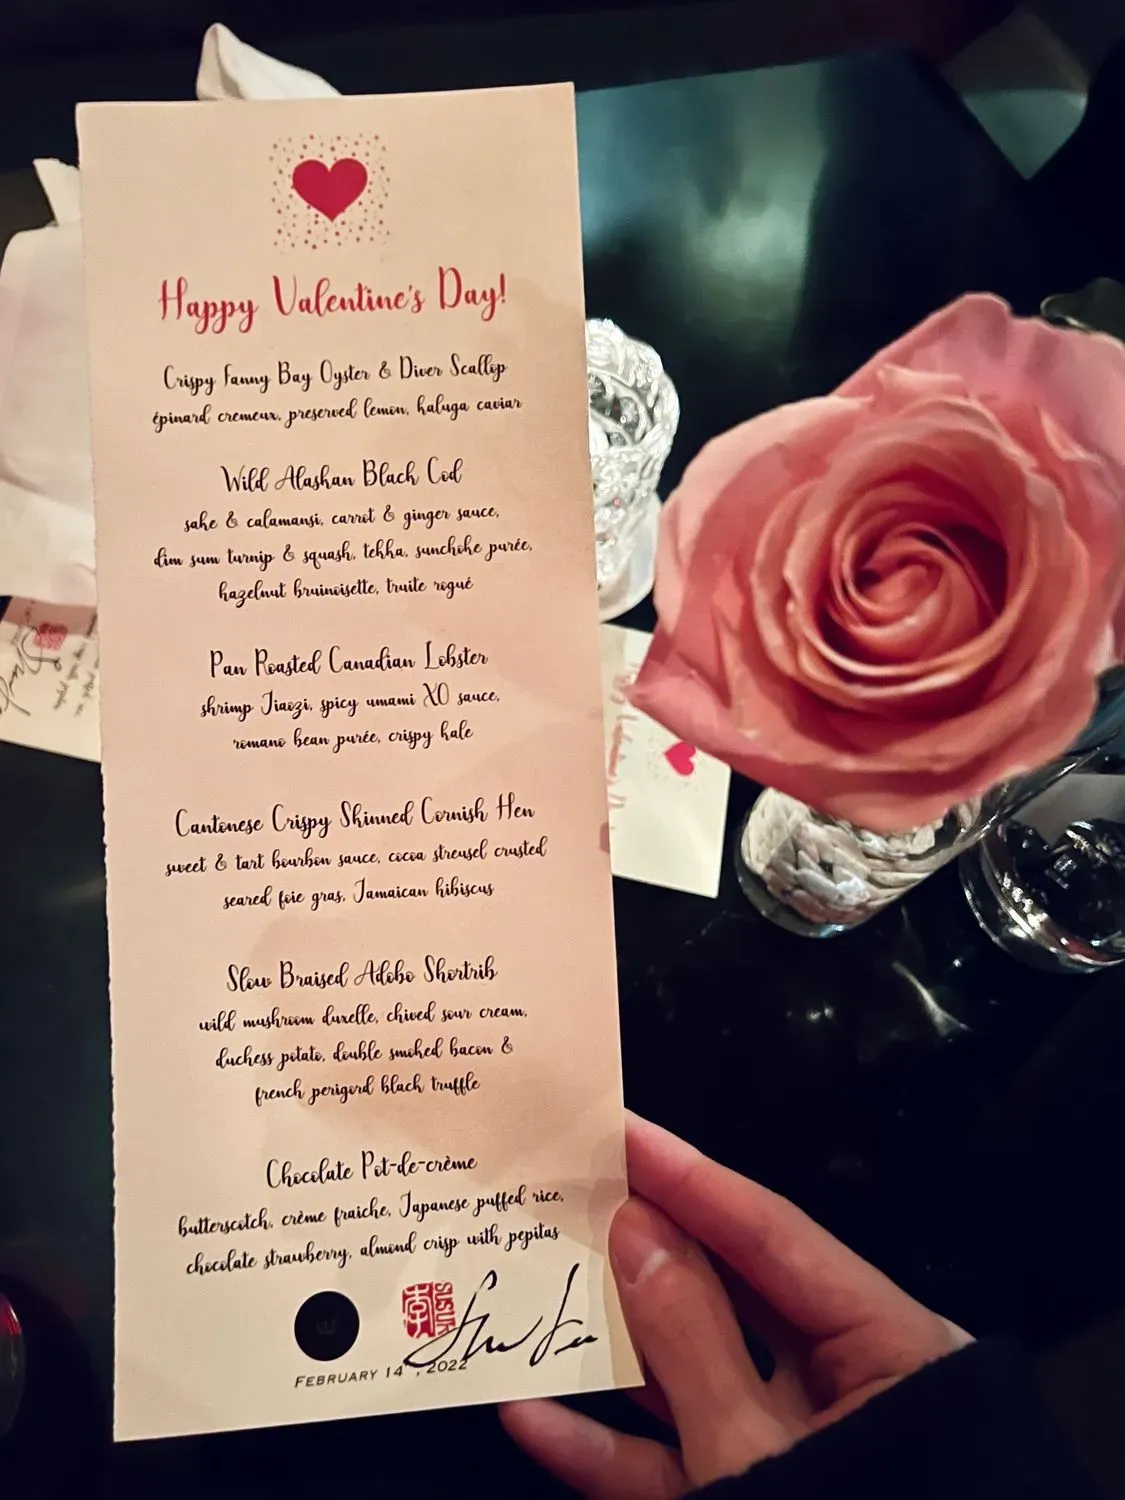 Happy Valentine's Day!
Crispy Fanny Bay Oyster & Diver Scallop
épinard cremeux, preserved lemon, kaluga caviar
Wild Alaskan Black Cod
sake & calamansi, carrot & ginger sauce,
dim sum turnip & squash, tekka, sunchoke purée,
hazelnut bruinoisette, truite rogué
Pan Roasted Canadian Lobster
shrimp Jiaozi, spicy umami XO sauce,
romano bean purée, crispy kale
Cantonese Crispy Skinned Cornish Hen
sweet & tart bourbon sauce, cocoa streusel crusted
seared foie gras, Jamaican hibiscus
Slow Braised Adobo Shortrib
wild mushroom duxelle, chived sour cream,
duchess potato, double smoked bacon &
french perigord black truffle
Chocolate Pot-de-crème
butterscotch, crème fraiche, Japanese puffed rice,
chocolate strawberry, almond crisp with pepitas
李 SUSUR
FEBRUARY 14TH, 2022